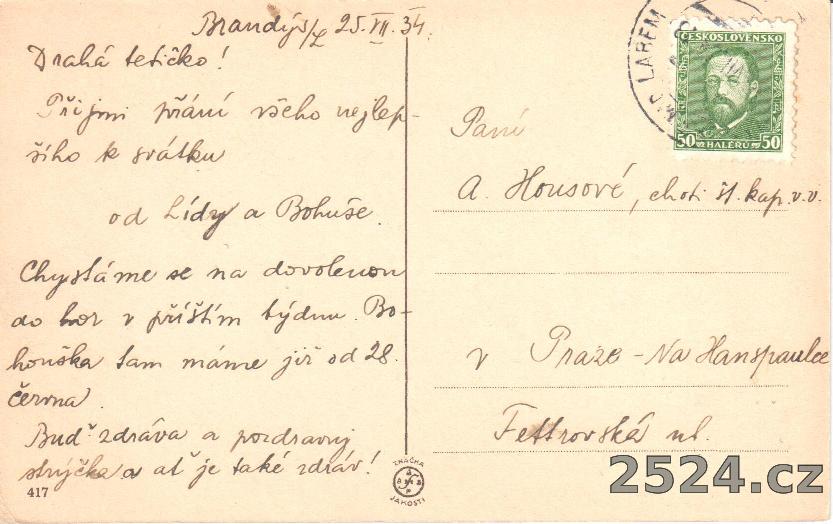 Brandýs/L 25.VII.34.
Drahá tetičko!
Přijmi přání všeho nejlep-
šího k svátku
od Lídy a Bohuše.
Chystáme se na dovolenou
do hor v příštím týdnu. Bo-
houška tam máme již od 28.
června.
Buď zdráva a pozdravuj
strýčka a ať je také zdráv!
417
ZNAČKA
JAKOSTI
LABEM
ČESKOSLOVENSKO
50 HALÉŘŮ 50
Paní
A. Housové, choti št. kap. v.v.
v Praze - Na Hanspaulce
Fettrovská ul.
2524.cz